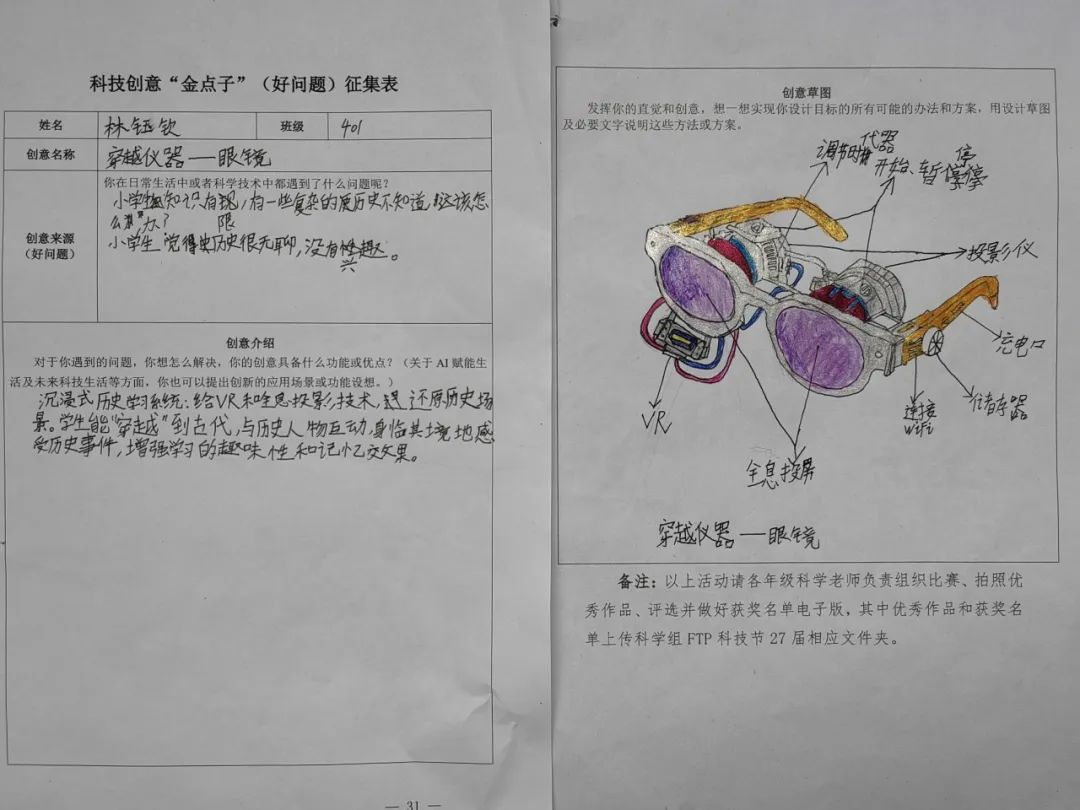 科技创意“金点子”（好问题）征集表
姓名 林钰钦 班级 401
创意名称 穿越仪器——眼镜
创意来源
（好问题）
你在日常生活中或者科学技术中都遇到了什么问题呢？
小学生知识有限，有一些复杂的历史不知道，这该怎
么办？
小学生觉得历史很无聊，没有兴趣。
创意介绍
对于你遇到的问题，你想怎么解决，你的创意具备什么功能或优点？（关于 AI 赋能生
活及未来科技生活等方面，你也可以提出创新的应用场景或功能设想。）
沉浸式历史学习系统：给VR和全息投影技术，还原历史场
景。学生能“穿越”到古代，与历史人物互动，身临其境地感
受历史事件，增强学习的趣味性和记忆效果。
— 31 —
创意草图
发挥你的直觉和创意，想一想实现你设计目标的所有可能的办法和方案，用设计草图
及必要文字说明这些方法或方案。
调节时代器
开始、暂停
投影仪
充电口
储存器
连接
wifi
VR
全息投屏
穿越仪器——眼镜
备注：以上活动请各年级科学老师负责组织比赛、拍照优
秀作品、评选并做好获奖名单电子版，其中优秀作品和获奖名
单上传科学组 FTP 科技节 27 届相应文件夹。